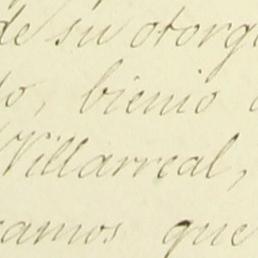 de su otorg
to, bienio
Villarreal,
camos que